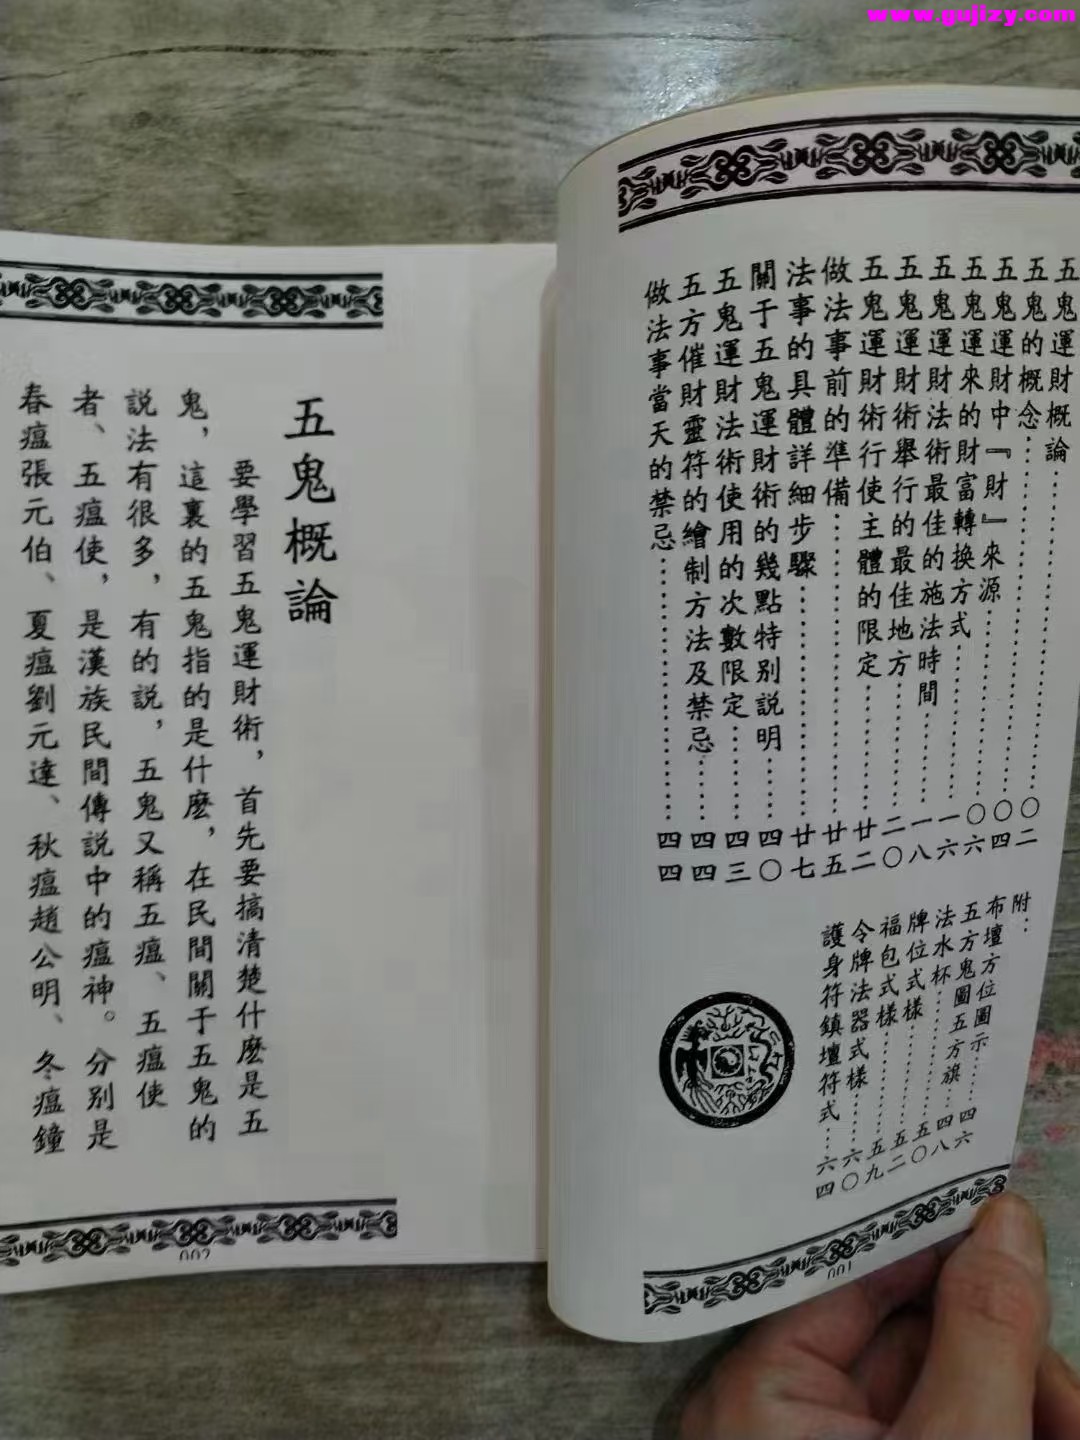 www.gujizy.com
五鬼運財概論 〇二
五鬼的概念 〇四
五鬼運財中『財』來源 〇六
五鬼運來的財富轉換方式 一六
五鬼運財法術最佳的施法時間 一八
五鬼運財術舉行的最佳地方 二〇
五鬼運財術行使主體的限定 廿二
做法事前的準備 廿五
法事的具體詳細步驟 廿七
關于五鬼運財術的幾點特别説明 四〇
五鬼運財法術使用的次數限定 四三
五方催財靈符的繪制方法及禁忌 四四
做法事當天的禁忌 四四
附：
布壇方位圖示 四六
五方鬼圖五方旗 四八
法水杯 五〇
牌位式樣 五二
福包式樣 五九
令牌法器式樣 六〇
護身符鎮壇符式 六四
001
五鬼概論
要學習五鬼運財術，首先要搞清楚什麽是五
鬼，這裏的五鬼指的是什麽，在民間關于五鬼的
説法有很多，有的説，五鬼又稱五瘟、五瘟使
者、五瘟使，是漢族民間傳説中的瘟神。分别是
春瘟張元伯、夏瘟劉元達、秋瘟趙公明、冬瘟鐘
002